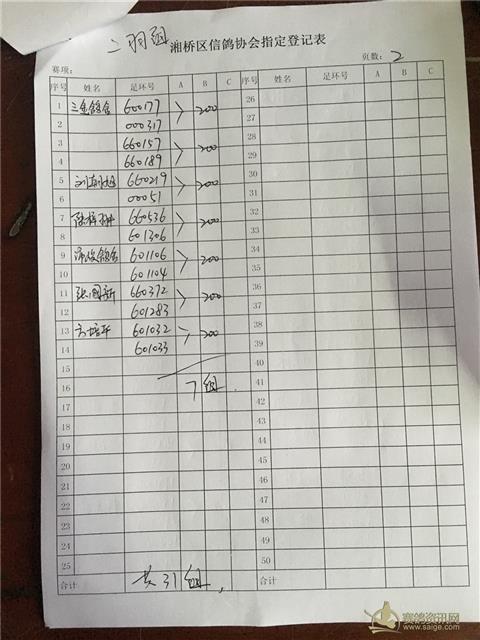 二羽组 湘桥区信鸽协会指定登记表
赛项： 页数：2
序号 姓名 足环号 A B C 序号 姓名 足环号 A B C
1 三金鸽舍 600177 > 200 26
2 000317 27
3 660157 > 200 28
4 660189 29
5 660219 > 200 30
6 00051 31
7 660536 > 200 32
8 601306 33
9 鸽舍 601106 > 200 34
10 601104 35
11 张国新 660372 > 200 36
12 601283 37
13 方培平 601032 > 200 38
14 601033 39
15 40
16 7组 41
17 42
18 43
19 44
20 45
21 46
22 47
23 48
24 49
25 50
合计 共31组 合计
赛鸽资讯网
www.saige.com